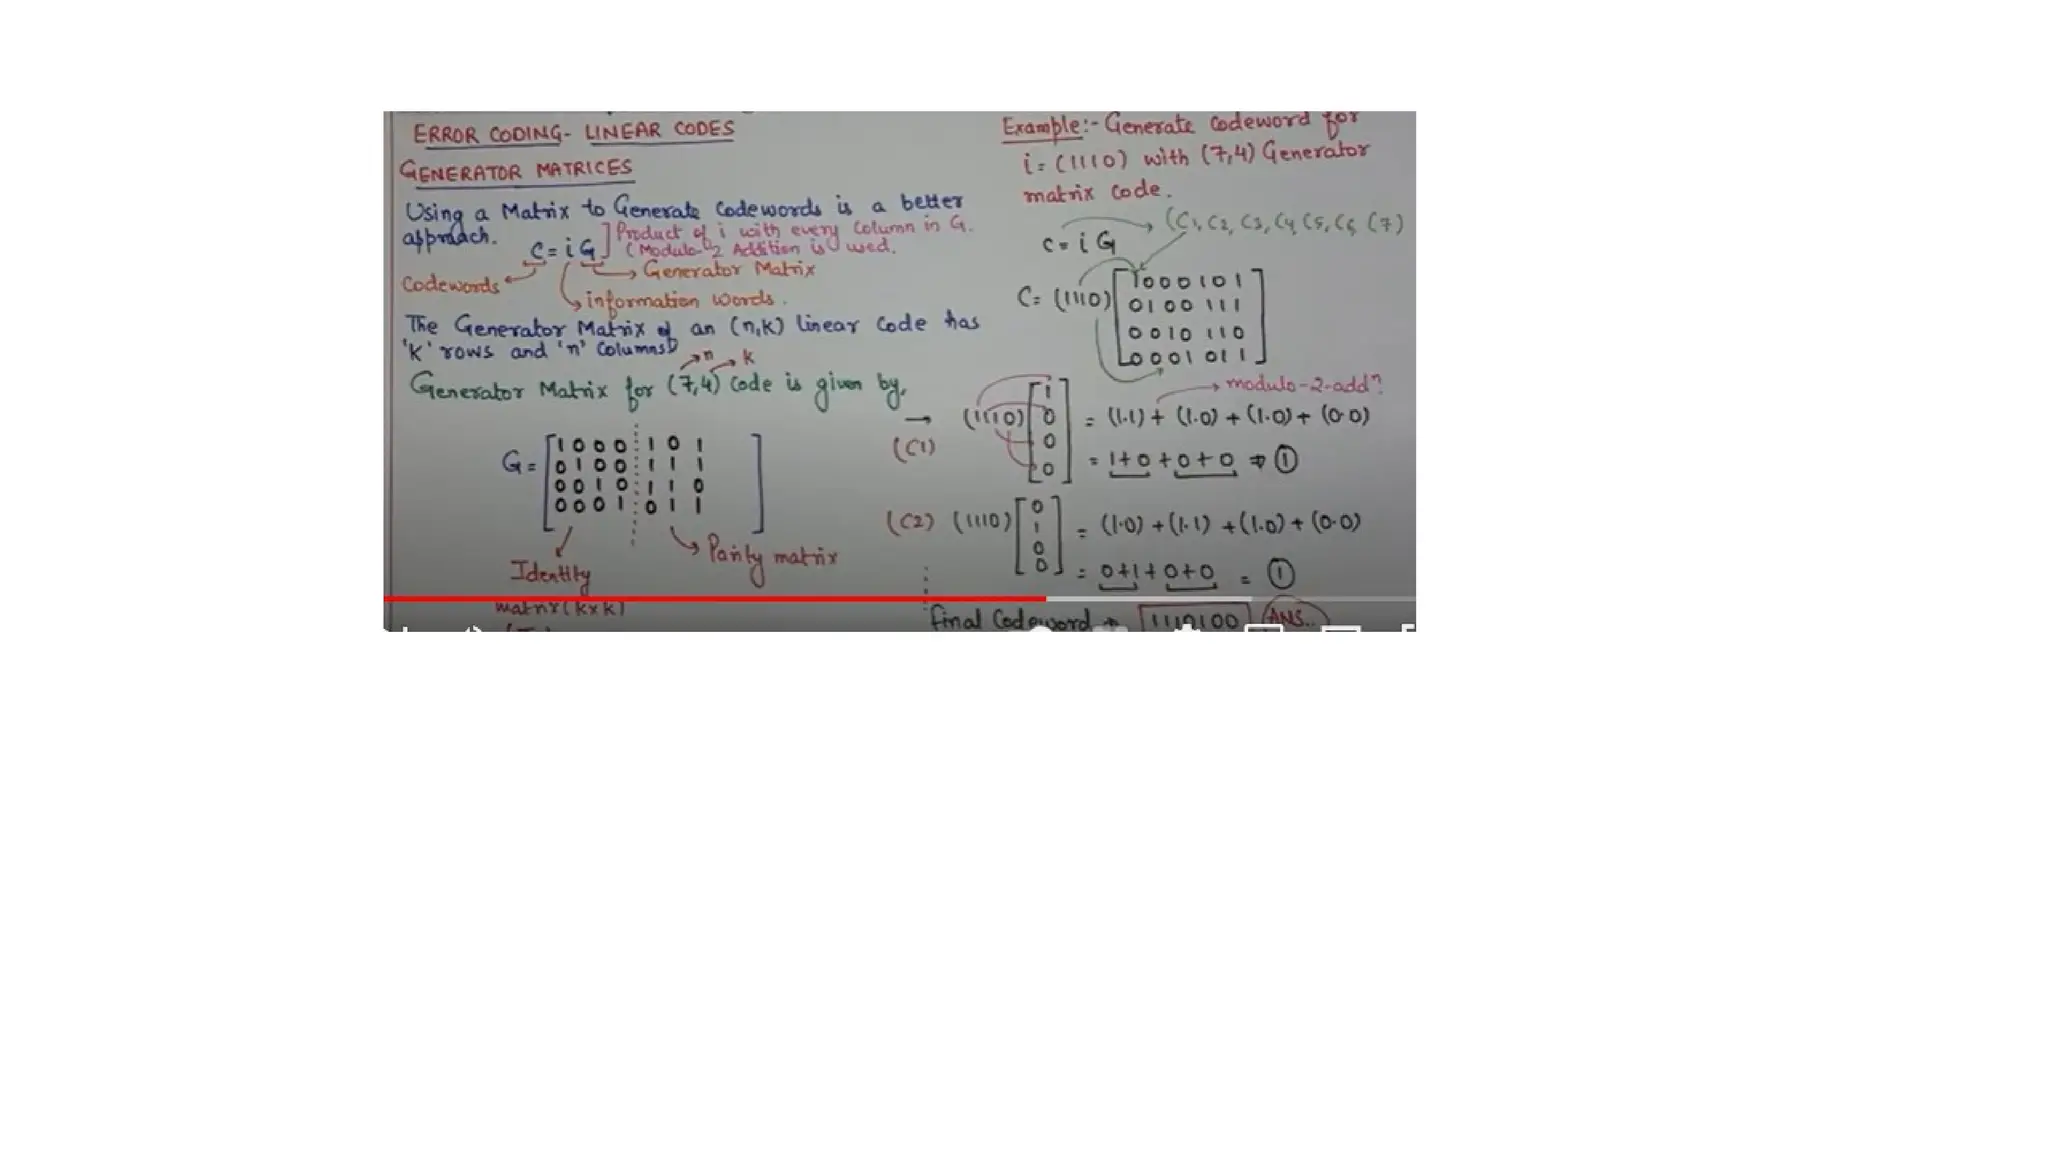 ERROR CODING- LINEAR CODES
GENERATOR MATRICES
Using a Matrix to Generate Codewords is a better
approach.
C = i G ] Product of i with every Column in G.
(Modulo-2 Addition is used.
Codewords
Generator Matrix
information words.
The Generator Matrix of an (n,k) linear Code has
'k' rows and 'n' Columns
n k
Generator Matrix for (7,4) Code is given by,
G =
1 0 0 0 1 0 1
0 1 0 0 1 1 1
0 0 1 0 1 1 0
0 0 0 1 0 1 1
Identity
matrix (k x k)
Parity matrix
Example:- Generate Codeword for
i = (1110) with (7,4) Generator
matrix code.
C = i G (C1, C2, C3, C4, C5, C6, C7)
C = (1110)
1 0 0 0 1 0 1
0 1 0 0 1 1 1
0 0 1 0 1 1 0
0 0 0 1 0 1 1
modulo-2-addn
(C1) (1110) [1 0 0 0] = (1.1) + (1.0) + (1.0) + (0.0)
= 1+0 + 0+0 ⇒ 1
(C2) (1110) [0 1 0 0] = (1.0) + (1.1) + (1.0) + (0.0)
= 0+1 + 0+0 = 1
final Codeword → 1110100 ANS..